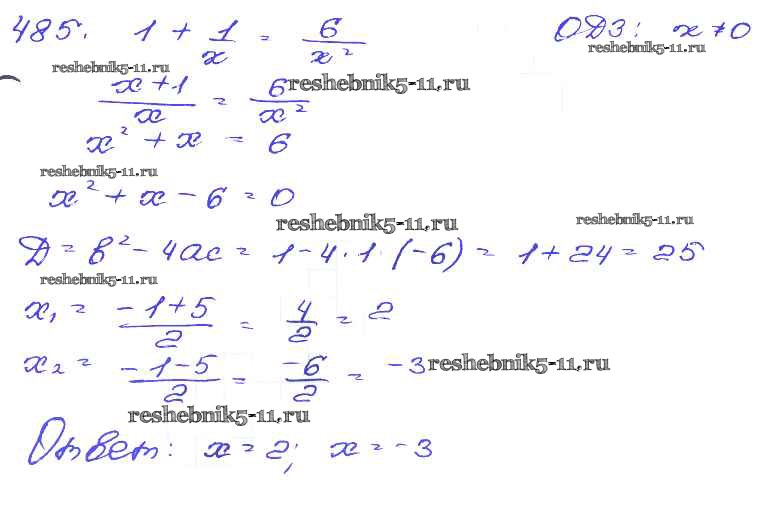 485. 1 + 1/x = 6/x² ОДЗ: x ≠ 0
reshebnik5-11.ru
reshebnik5-11.ru
(x+1)/x = 6/x² reshebnik5-11.ru
x² + x = 6
reshebnik5-11.ru
x² + x - 6 = 0
reshebnik5-11.ru reshebnik5-11.ru
Д = в² - 4ас = 1 - 4·1·(-6) = 1 + 24 = 25
reshebnik5-11.ru
x₁ = (-1+5)/2 = 4/2 = 2
x₂ = (-1-5)/2 = -6/2 = -3 reshebnik5-11.ru
reshebnik5-11.ru
Ответ: x = 2; x = -3